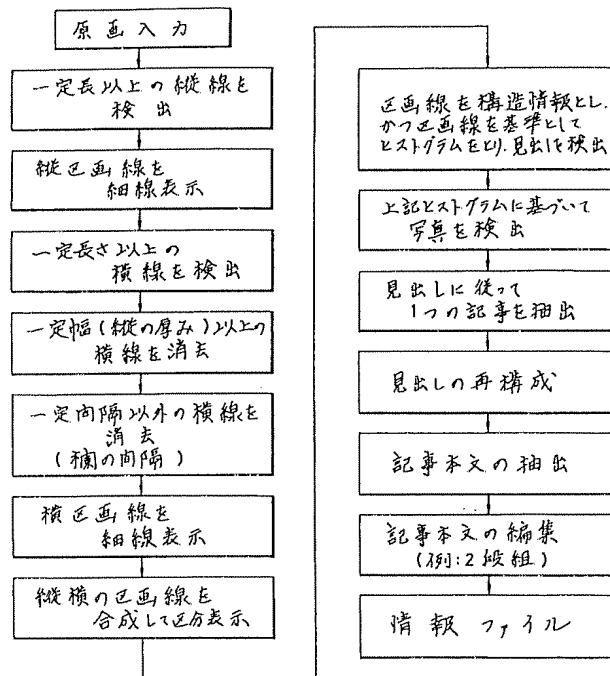 原画入力
一定長以上の縦線を
検出
縦区画線を
細線表示
一定長さ以上の
横線を検出
一定幅(縦の厚み)以上の
横線を消去
一定間隔以外の横線を
消去
(欄の間隔)
横区画線を
細線表示
縦横の区画線を
合成して区分表示
区画線を構造情報とし,
かつ区画線を基準として
ヒストグラムをとり,見出しを検出
上記ヒストグラムに基づいて
写真を検出
見出しに従って
1つの記事を抽出
見出しの再構成
記事本文の抽出
記事本文の編集
(例:2段組)
情報ファイル